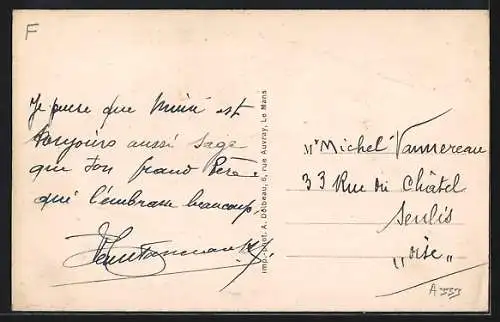 F
Je pense que Mimi est
toujours aussi sage
que ton grand Père
qui l'embrasse beaucoup
Imp.-Phot. A. Dolbeau, 5, rue Auvray, Le Mans
Mr Michel Vannereau
33 Rue du Châtel
Senlis
"oise"